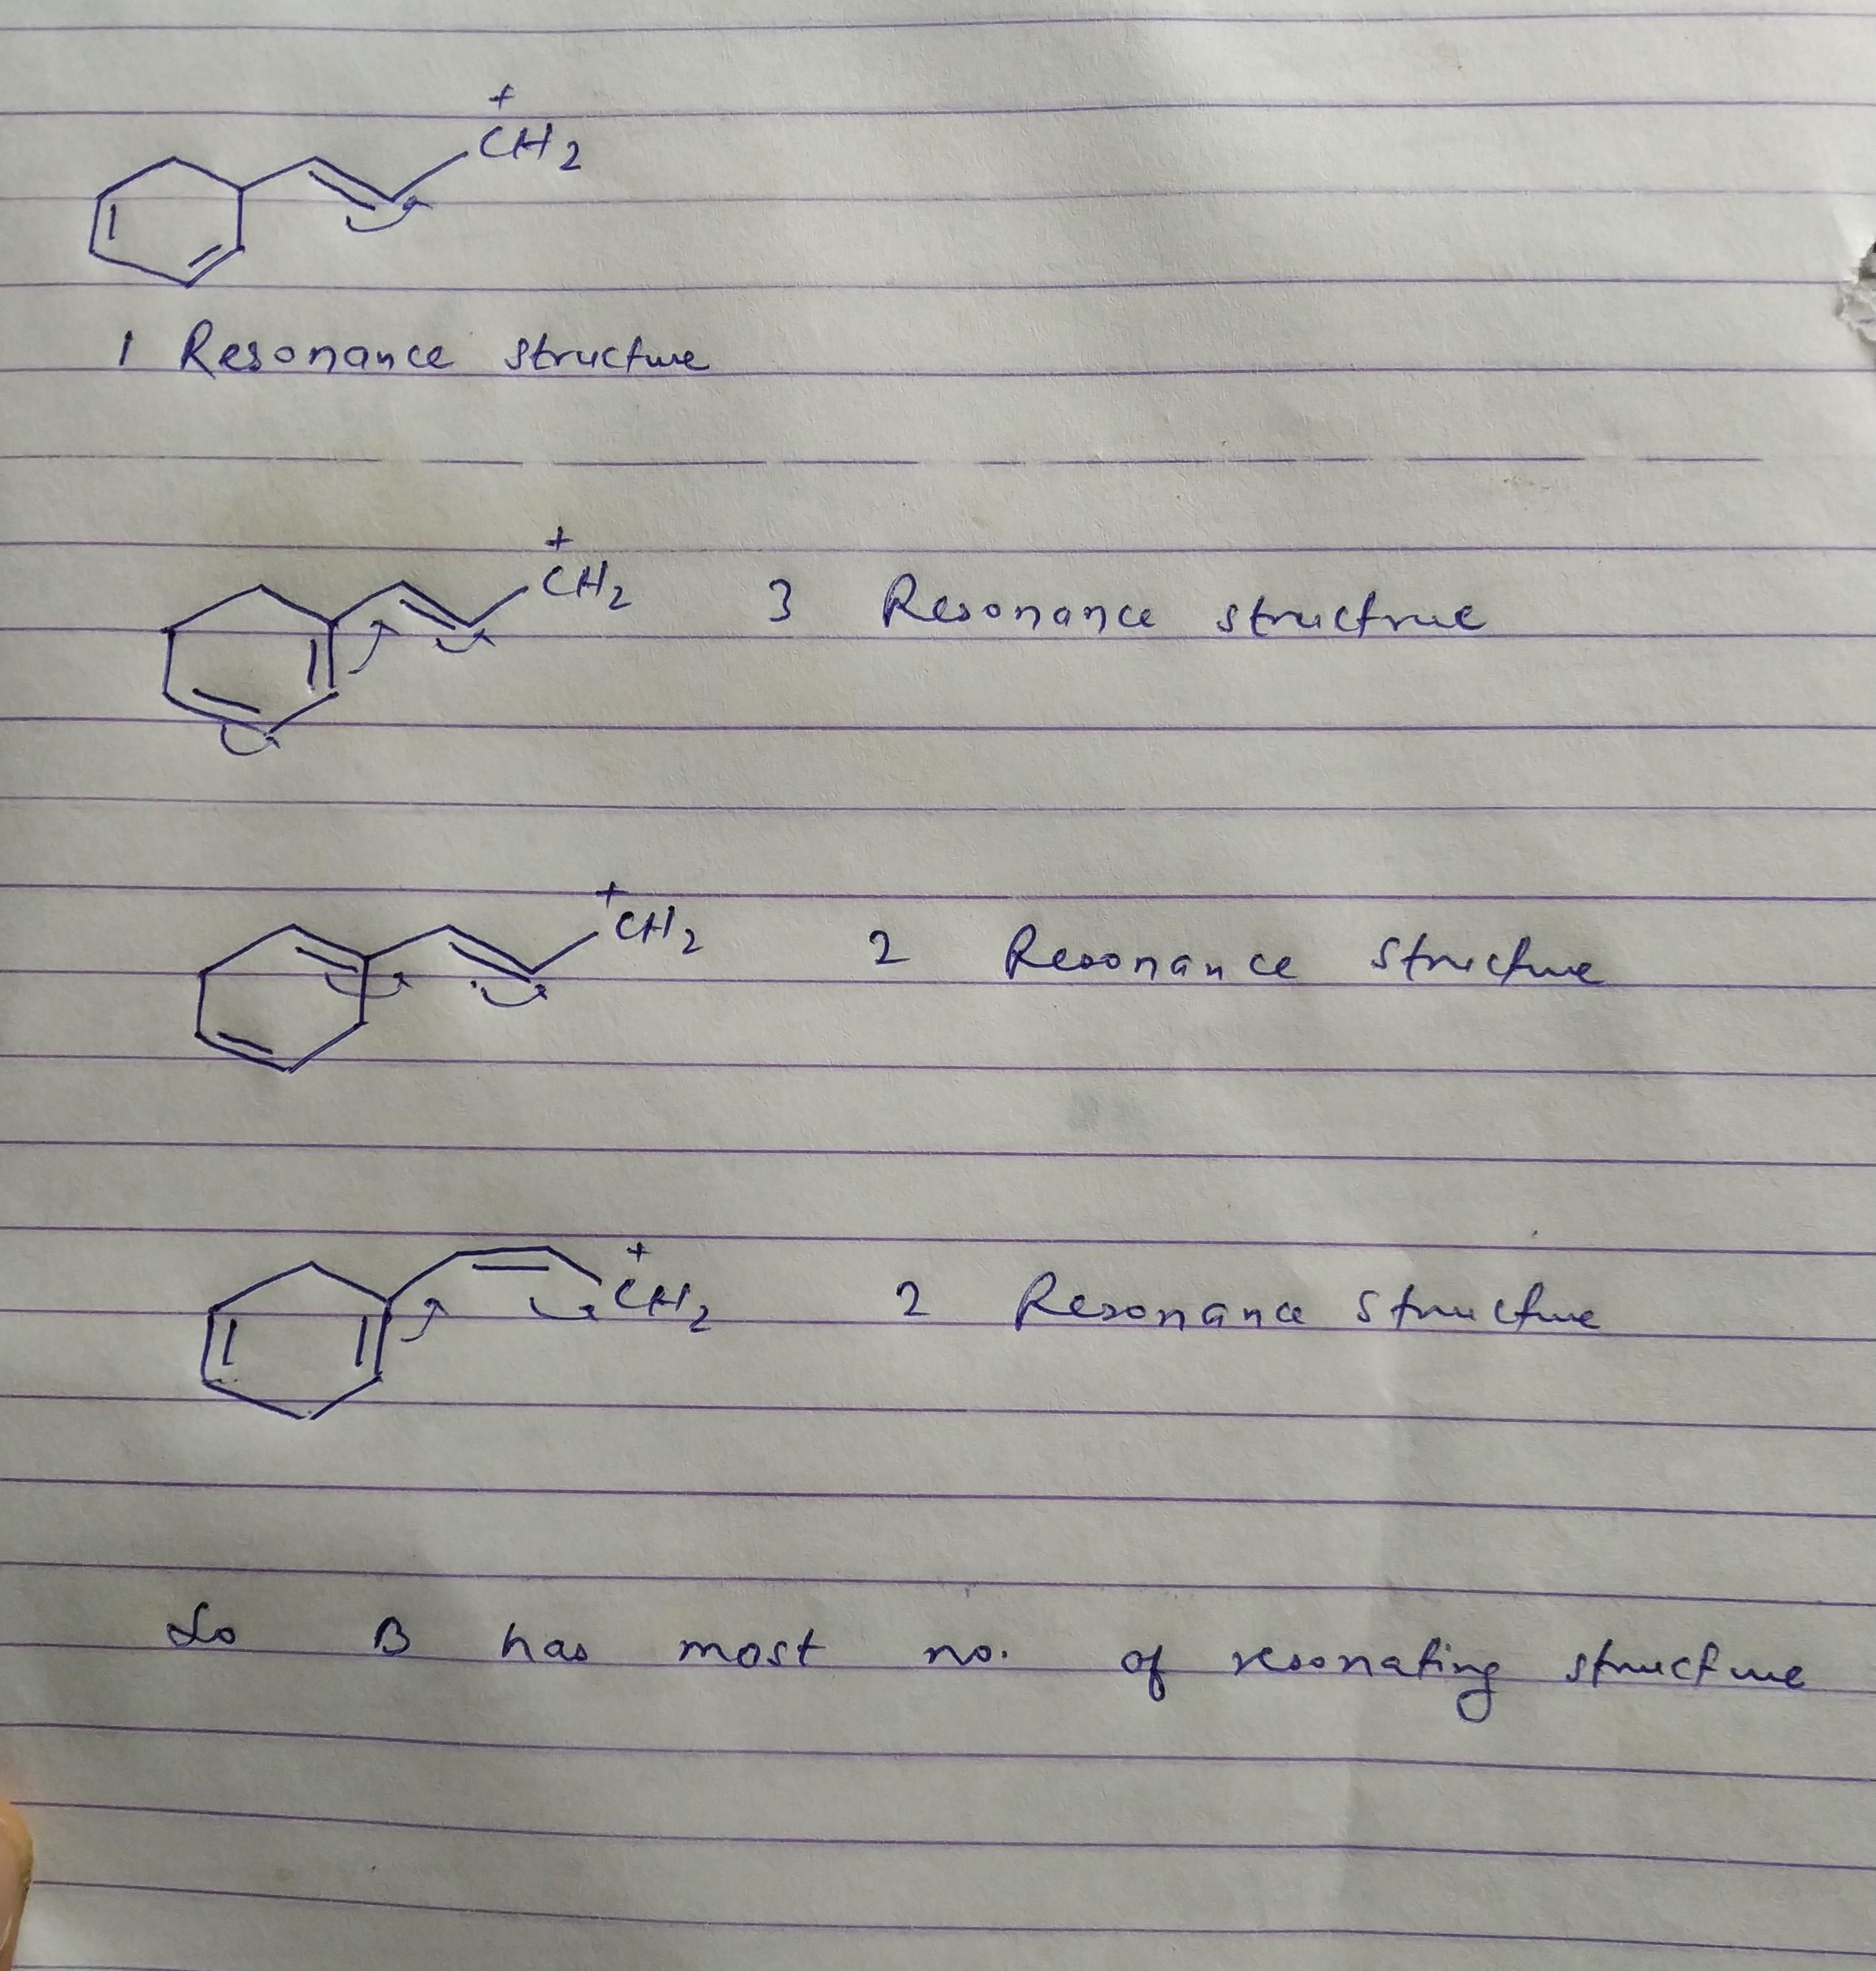 +
CH2
1 Resonance structure
+
CH2 3 Resonance structrue
+
CH2 2 Resonance Structure
+
CH2 2 Resonance Structure
So B has most no. of resonating structure